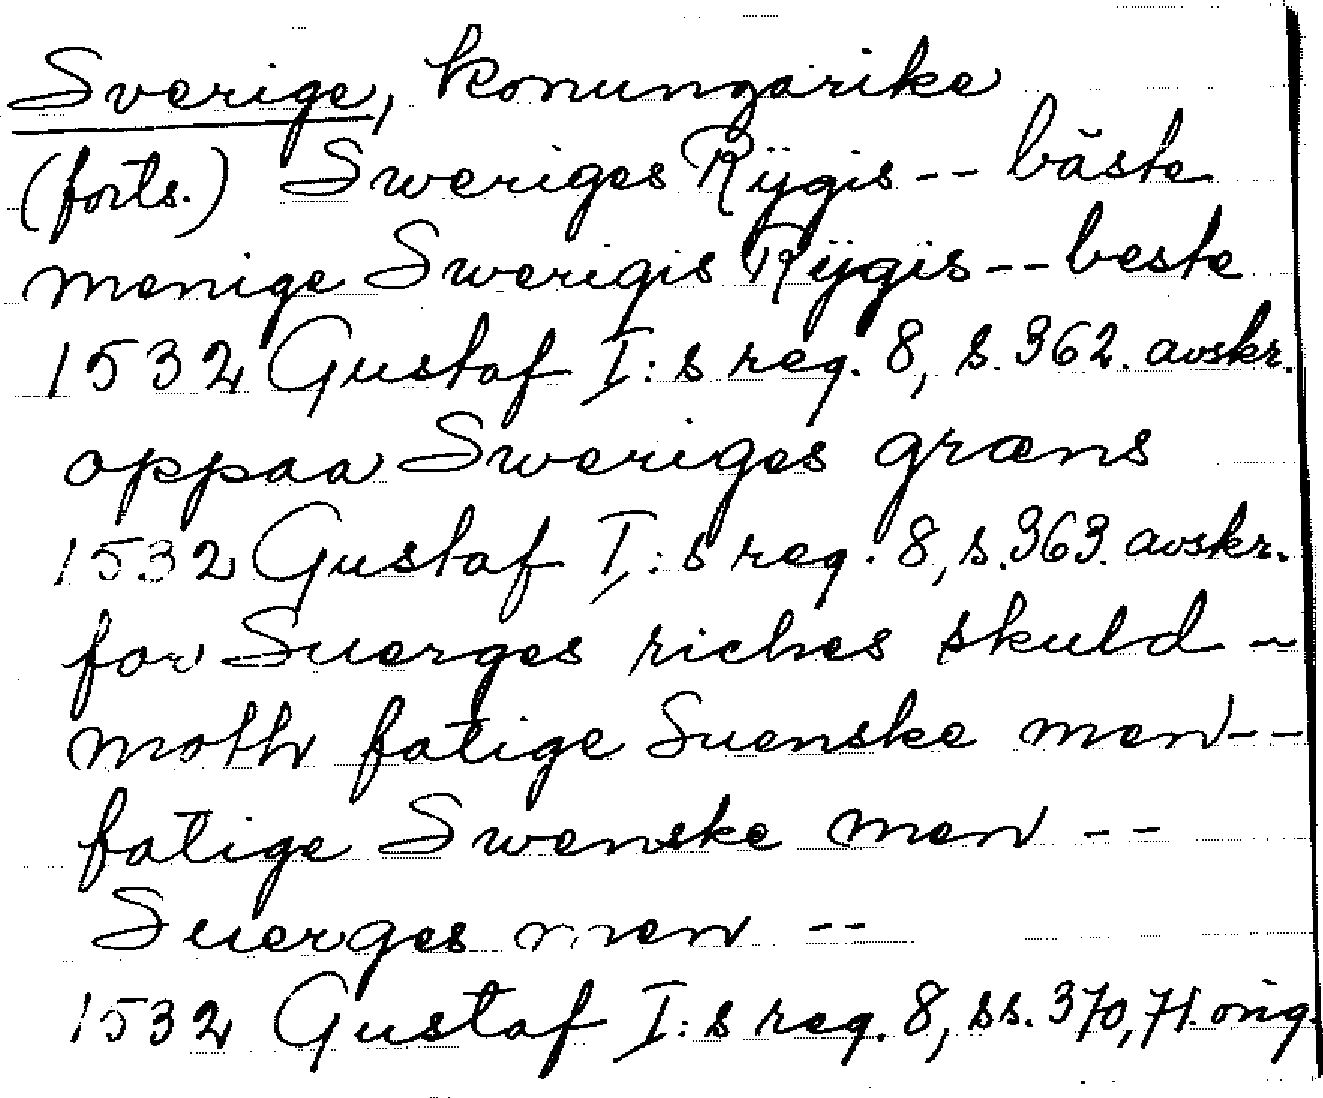 Sverige, konungarike
(forts.) Sweriges Rÿgis -- bäste
menige Swerigis Rÿgis -- beste
1532 Gustaf I:s reg. 8, s. 362. avskr.
oppaa Sweriges græns
1532 Gustaf I:s reg. 8, s. 363. avskr.
for Suerges riches skuld --
moth fatige Suenske men --
fatige Swenske men --
Suerges men --
1532 Gustaf I:s reg. 8, ss. 370, 71. orig.